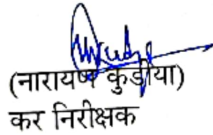 (नारायण कुंडीया)
कर निरीक्षक